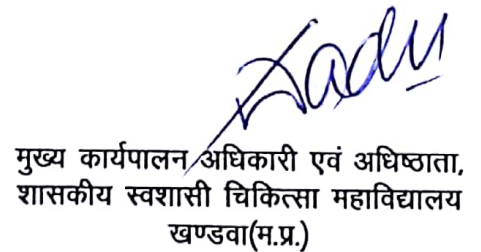 मुख्य कार्यपालन अधिकारी एवं अधिष्ठाता,
शासकीय स्वशासी चिकित्सा महाविद्यालय
खण्डवा(म.प्र.)